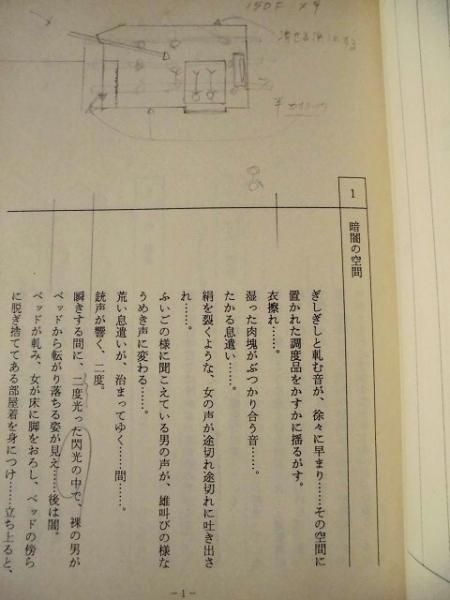 150F × 9
1
暗闇の空間
ぎしぎしと軋む音が、徐々に早まり……その空間に
置かれた調度品をかすかに揺るがす。
衣擦れ……。
湿った肉塊がぶつかり合う音……。
たかる息遣い……。
絹を裂くような、女の声が途切れ途切れに吐き出さ
れ……。
ふいごの様に聞こえている男の声が、雄叫びの様な
うめき声に変わる……。
荒い息遣いが、治まってゆく……間……。
銃声が響く、二度。
瞬きする間に、二度光った閃光の中で、裸の男が
ベッドから転がり落ちる姿が見え……後は闇。
ベッドが軋み、女が床に脚をおろし、ベッドの傍ら
に脱ぎ捨ててある部屋着を身につけ……立ち上ると、
－1－